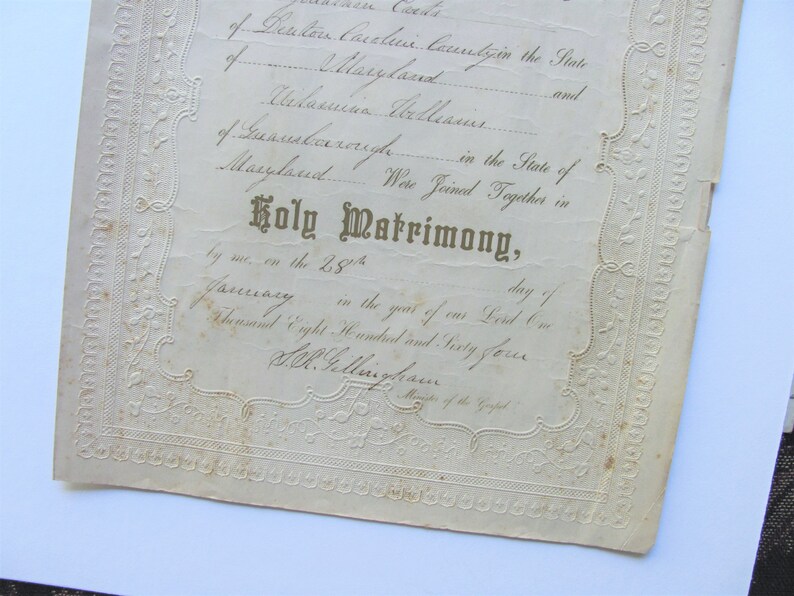 of Denton Caroline County in the State
of Maryland and
Wilamina Williams
of Greensborough in the State of
Maryland Were Joined Together in
Holy Matrimony,
by me, on the 28th day of
January in the year of our Lord One
Thousand Eight Hundred and Sixty four
S. R. Gillingham
Minister of the Gospel